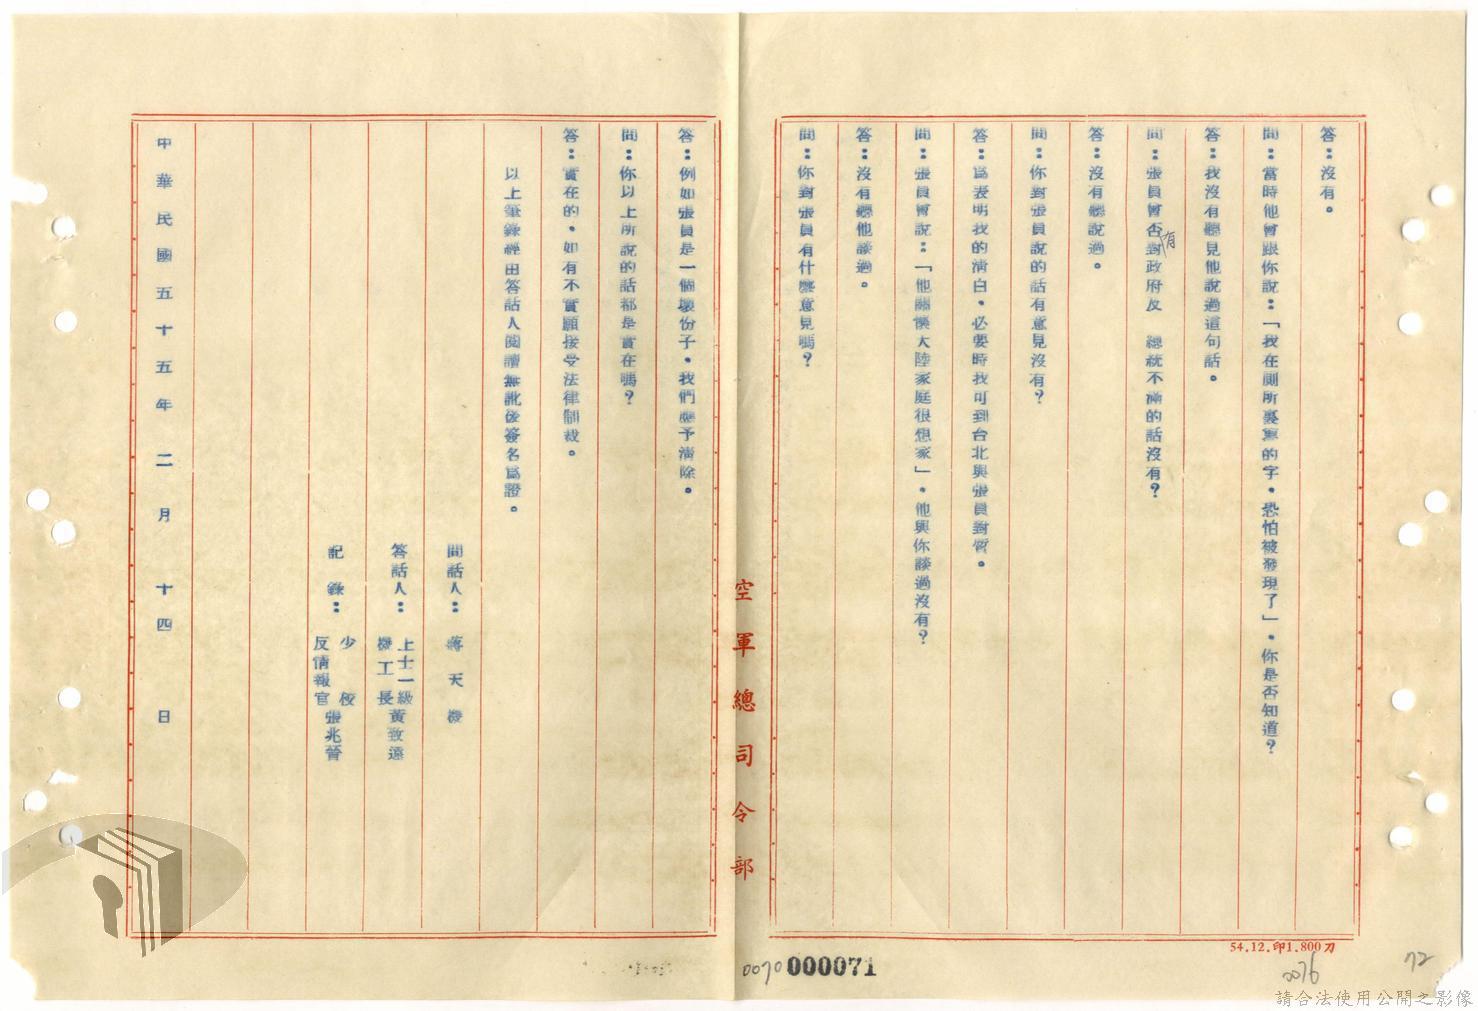 答：沒有。
問：當時他曾跟你說：「我在厠所裏寫的字，恐怕被發現了」，你是否知道？
答：我沒有聽見他說過這句話。
問：張員曾否對政府及　總統不滿的話沒有？
有
答：沒有聽說過。
問：你對張員說的話有意見沒有？
答：爲表明我的淸白，必要時我可到台北與張員對質。
問：張員曾說：「他關懷大陸家庭很想家」，他與你談過沒有？
答：沒有聽他談過。
問：你對張員有什麼意見嗎？
空軍總司令部
答：例如張員是一個壞份子，我們應予淸除。
問：你以上所說的話都是實在嗎？
答：實在的，如有不實願接受法律制裁。
以上筆錄經由答話人閱讀無訛後簽名爲證。
問話人：蔣天機
答話人：上士一級機工長黃致遠
記錄：少校反情報官張兆晉
中華民國五十五年二月十四日
54.12.印1.800刀
0070 000071
0076
72
請合法使用公開之影像